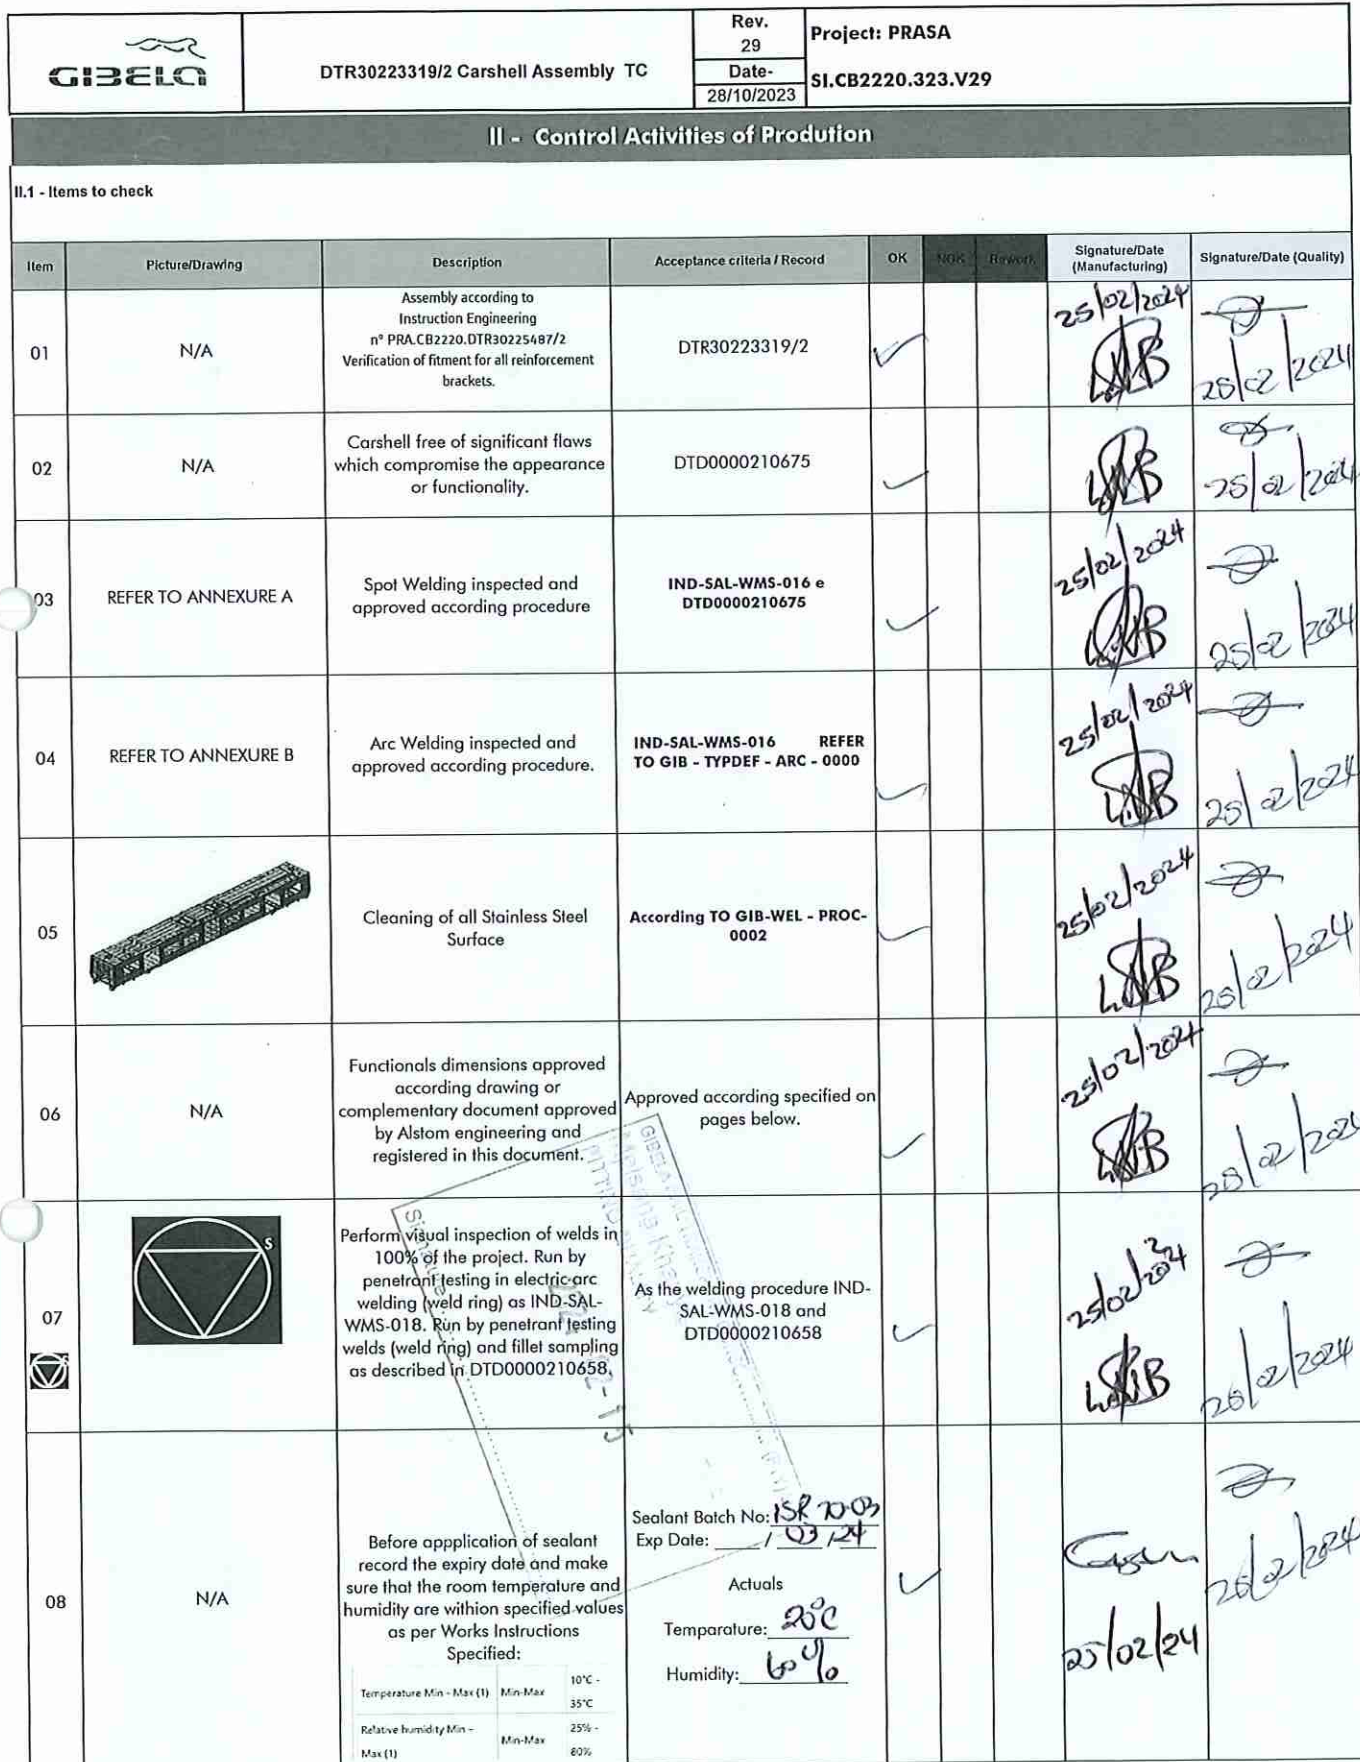 GIBELA
DTR30223319/2 Carshell Assembly TC
Rev.
29
Date-
28/10/2023
Project: PRASA
SI.CB2220.323.V29
II - Control Activities of Prodution
II.1 - Items to check
Item
Picture/Drawing
Description
Acceptance criteria / Record
OK
NOK
Rework
Signature/Date
(Manufacturing)
Signature/Date (Quality)
01
N/A
Assembly according to
Instruction Engineering
nº PRA.CB2220.DTR30225487/2
Verification of fitment for all reinforcement
brackets.
DTR30223319/2
25/02/2024
25/02/2024
02
N/A
Carshell free of significant flaws
which compromise the appearance
or functionality.
DTD0000210675
25/02/2024
03
REFER TO ANNEXURE A
Spot Welding inspected and
approved according procedure
IND-SAL-WMS-016 e
DTD0000210675
25/02/2024
25/02/2024
04
REFER TO ANNEXURE B
Arc Welding inspected and
approved according procedure.
IND-SAL-WMS-016 REFER
TO GIB - TYPDEF - ARC - 0000
25/02/2024
25/02/2024
05
Cleaning of all Stainless Steel
Surface
According TO GIB-WEL - PROC-
0002
25/02/2024
25/02/2024
06
N/A
Functionals dimensions approved
according drawing or
complementary document approved
by Alstom engineering and
registered in this document.
Approved according specified on
pages below.
25/02/2024
25/02/2024
07
S
Perform visual inspection of welds in
100% of the project. Run by
penetrant testing in electric-arc
welding (weld ring) as IND-SAL-
WMS-018. Run by penetrant testing
welds (weld ring) and fillet sampling
as described in DTD0000210658,
As the welding procedure IND-
SAL-WMS-018 and
DTD0000210658
25/02/2024
08
N/A
Before appplication of sealant
record the expiry date and make
sure that the room temperature and
humidity are withion specified values
as per Works Instructions
Specified:
Temperature Min - Max (1) Min-Max 10°C -
35°C
Relative humidity Min - Max (1) Min-Max 25% -
80%
Sealant Batch No: ISR 70-03
Exp Date: / 03 / 24
Actuals
Temparature: 20°C
Humidity: 60%
25/02/24